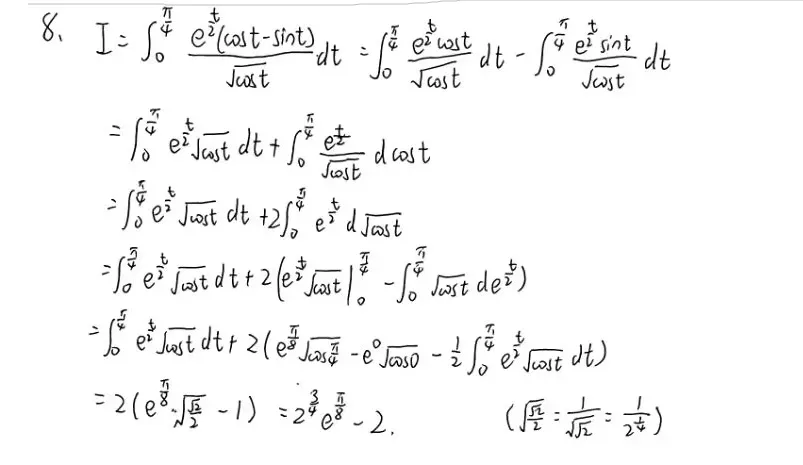 8. I = ∫₀^{π/4} e^{t/2}(cost-sint)/√cost dt = ∫₀^{π/4} e^{t/2}cost/√cost dt - ∫₀^{π/4} e^{t/2}sint/√cost dt
= ∫₀^{π/4} e^{t/2}√cost dt + ∫₀^{π/4} e^{t/2}/√cost dcost
= ∫₀^{π/4} e^{t/2}√cost dt + 2∫₀^{π/4} e^{t/2} d√cost
= ∫₀^{π/4} e^{t/2}√cost dt + 2(e^{t/2}√cost |₀^{π/4} - ∫₀^{π/4} √cost de^{t/2})
= ∫₀^{π/4} e^{t/2}√cost dt + 2(e^{π/8}√cos(π/4) - e⁰√cos0 - 1/2 ∫₀^{π/4} e^{t/2}√cost dt)
= 2(e^{π/8}·√(√2/2) - 1) = 2^{3/4}e^{π/8} - 2. (√(√2/2) = 1/√(√2) = 1/2^{1/4})